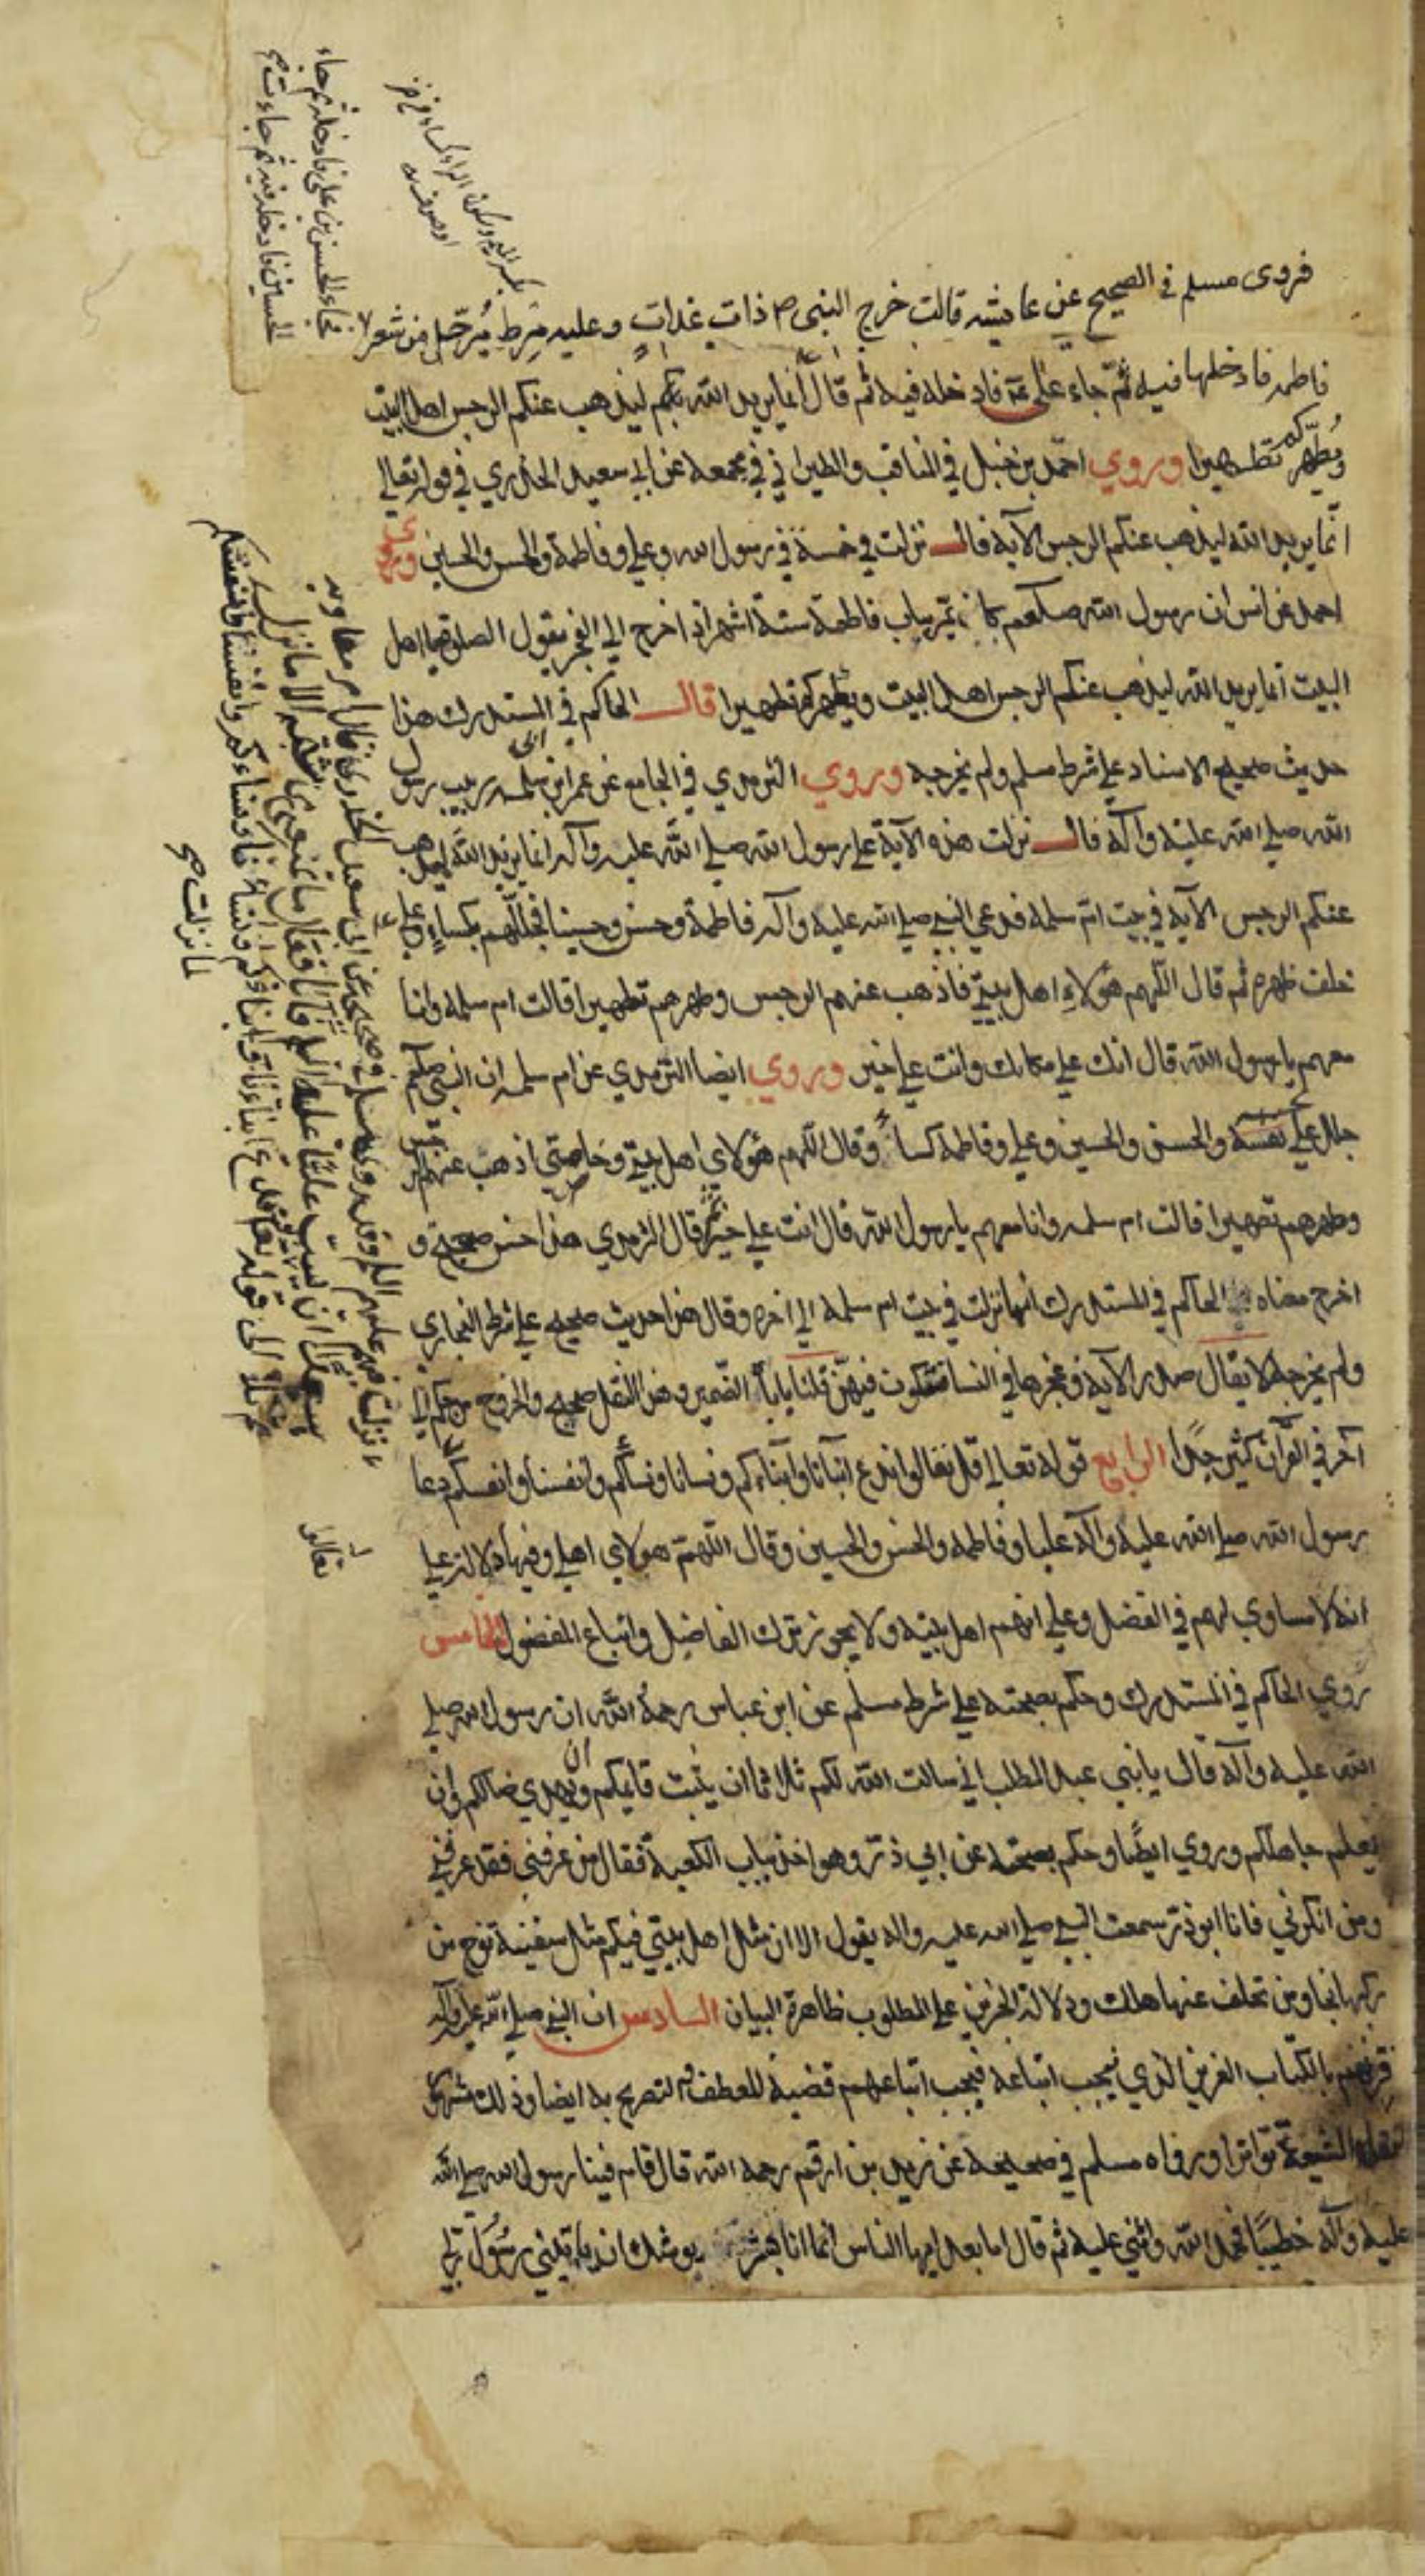 فروى مسلم في الصحيح عن عايشه قالت خرج النبي ص ذات غدات وعليه مِرط مُرحّل من شعر
فاطمه فادخلها فيه ثمّ جاء علي فادخله فيه ثم قال انما يريد الله ليذهب عنكم الرجس اهل البيت
ويُطهّركم تطهيرا وروي احمد بن حنبل في المناقب والطبراني في معجمه عن ابي سعيد الخدري في قوله تعالى
انّما يريد الله ليذهب عنكم الرجس الآية قال نزلت في خمسة في رسول الله وعلي وفاطمة والحسن والحسين وروى
احمد عن انس ان رسول الله صلعم كان يمرّ بباب فاطمة ستة اشهر اذا خرج الى الفجر يقول الصلوة يا اهل
البيت انما يريد الله ليذهب عنكم الرجس اهل البيت ويطهركم تطهيرا قال الحاكم في المستدرك هذا
حديث صحيح الاسناد علي شرط مسلم ولم يخرجه وروي الترمدي في الجامع عن عمر ابن ابي سلمه ربيب رسول
الله صلي الله عليه وآله قال نزلت هذه الآية علي رسول الله صلي الله عليه وآله انما يريد الله ليذهب
عنكم الرجس الآية في بيت امّ سلمه فدعي النبي صلي الله عليه وآله فاطمة وحسن وحسينا فجللهم بكساءٍ وعلي
خلف ظهره ثم قال اللّهم هؤلاءِ اهل بيتي فاذهب عنهم الرجس وطهرهم تطهيرا قالت ام سلمه وانا
معهم يا رسول الله قال انك علي مكانك وانت علي خير وروي ايضا الترمدي عن ام سلمه ان النبي صلعم
جلل علي نفسه والحسن والحسين وعلي وفاطمة كساً وقال اللهم هؤلاي اهل بيتي وخاصتي اذهب عنهم الرجس
وطهرهم تطهيرا قالت ام سلمه وانا معهم يا رسول الله قال انت علي خير قال الترمدي هذا حسن صحيح و
اخرج معناه الحاكم في المستدرك انها نزلت في بيت ام سلمة الي اخره وقال هذا حديث صحيح علي شرط البخاري
ولم يخرجه لا يقال صدر الآية وعجزها في النسا فتكون فيهنّ قلنا ياباه الضمير وهذا النقل صحيح والخروج من حكم الي
آخر في القرآن كثير جدّا الرابع قوله تعالي قل تعالوا ندع ابنآنا وآبناءكم ونسانا ونسآكم وانفسنا وانفسكم دعا
رسول الله صلي الله عليه وآله عليا وفاطمه والحسن والحسين وقال اللّهمّ هولاي اهلي وفيها دلالة علي
انه لا مساوي لهم في الفضل وعلي انهم اهل بيته ولا يجوز ترك الفاضل واتباع المفضول الخامس
روي الحاكم في المستدرك وحكم بصحته علي شرط مسلم عن ابن عباس رحمة الله ان رسول الله صلي
الله عليه وآله قال يا بني عبد المطلب اني سالت الله لكم ثلاثا ان يثبت قايمكم وان يهدي ضالكم وان
يعلم جاهلكم وروي ايضًا وحكم بصحته عن ابي ذرّ وهو اخذ بباب الكعبة فقال من عرفني فقد عرفني
ومن انكرني فانا ابو ذرّ سمعت النبي صلي الله عليه واله يقول الا ان مثل اهل بيتي فيكم مثل سفينة نوح من
ركبها نجا ومن تخلف عنها هلك ودلالة الخبرين علي المطلوب ظاهرة البيان السادس ان النبي صلي الله عليه وآله
قرنهم بالكتاب العزيز الذي يجب اتباعه فيجب اتباعهم قضية للعطف و التصريح به ايضا وذلك مشهور
نقله الشيعة تواترا ورواه مسلم في صحيحه عن زيد بن ارقم رحمه الله قال قام فينا رسول الله صلي الله
عليه وآله خطيبًا فحمد الله واثني عليه ثم قال اما بعد ايها الناس انما انا بشر يوشك ان ياتيني رسُول ربي
فجاء الحسن بن علي فادخله ثم جاء
الحسين فادخله فيه ثم جاءت
لما نزلت صح
تعالوا